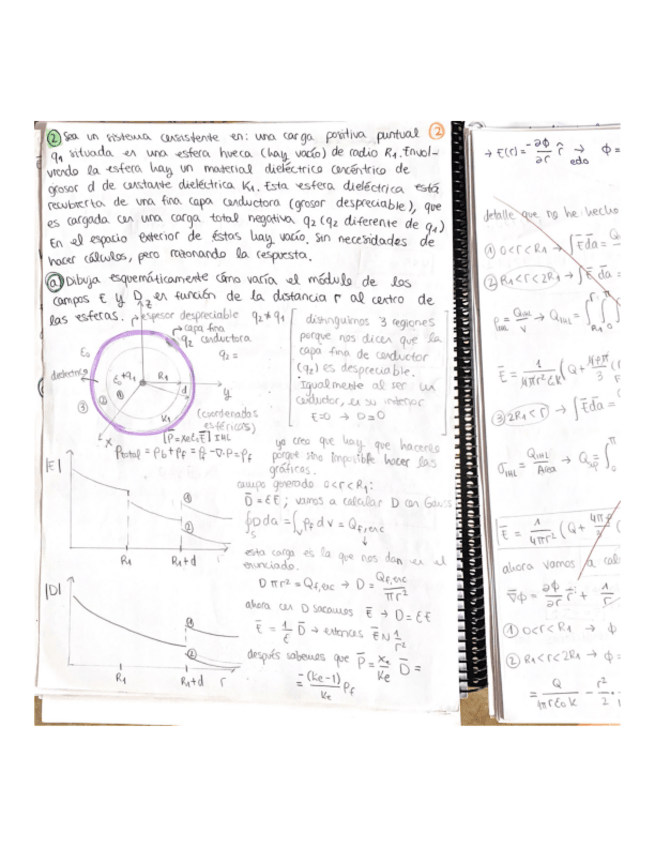 ② Sea un sistema consistente en: una carga positiva puntual ②
q₁ situada en una esfera hueca (hay vacío) de radio R₁. Envol-
viendo la esfera hay un material dieléctrico concéntrico de
grosor d de constante dieléctrica K₁. Esta esfera dieléctrica está
recubierta de una fina capa conductora (grosor despreciable), que
es cargada con una carga total negativa q₂ (q₂ diferente de q₁)
En el espacio exterior de éstas hay vacío. Sin necesidades de
hacer cálculos, pero razonando la respuesta.
ⓐ Dibuja esquemáticamente cómo varía el módulo de los
campos E y D, en función de la distancia r al centro de
las esferas.
z
espesor despreciable q₂ ≠ q₁
capa fina
q₂ conductora
q₂ =
ε₀
dieléctrico
ε₀ +q₁
R₁
d
y
①
②
③
K₁
x
(coordenadas
esféricas)
distinguimos 3 regiones
porque nos dicen que la
capa fina de conductor
(q₂) es despreciable.
Igualmente al ser un
conductor, en su interior
E=0 → D=0
ρtotal = ρb + ρf =
yo creo que hay que hacerlo
porque sino imposible hacer las
gráficas.
campo generado 0<r<R₁:
D̄ = εĒ ; vamos a calcular D con Gauss
∮ₛ D da = ∫ᵥ ρf dv = Qf,enc
↓
esta carga es la que nos dan en el
enunciado.
D π r² = Qf,enc → D = Qf,enc / πr²
ahora con D sacamos Ē → D = εE
Ē = 1/ε D̄ → entonces E ~ 1/r²
después sabemos que P̄ = χe/Ke D̄ =
= (ke-1)/ke ρf
|E|
①
②
R₁
R₁+d
r
|D|
①
②
R₁
R₁+d
r
→ E(r) = -∂ϕ/∂r r̂ → edo ϕ =
detalle que no he hecho
① 0<r<R₁ → ∫Ē dā =
② R₁<r<2R₁ → ∫Ē dā =
③ 2R₁<r → ∫Ē dā =
σIHL = QIHL/Area →
ahora vamos a cal
∇̄ϕ = ∂ϕ/∂r r̂ + 1/r
① 0<r<R₁ → ϕ
② R₁<r<2R₁ → ϕ =